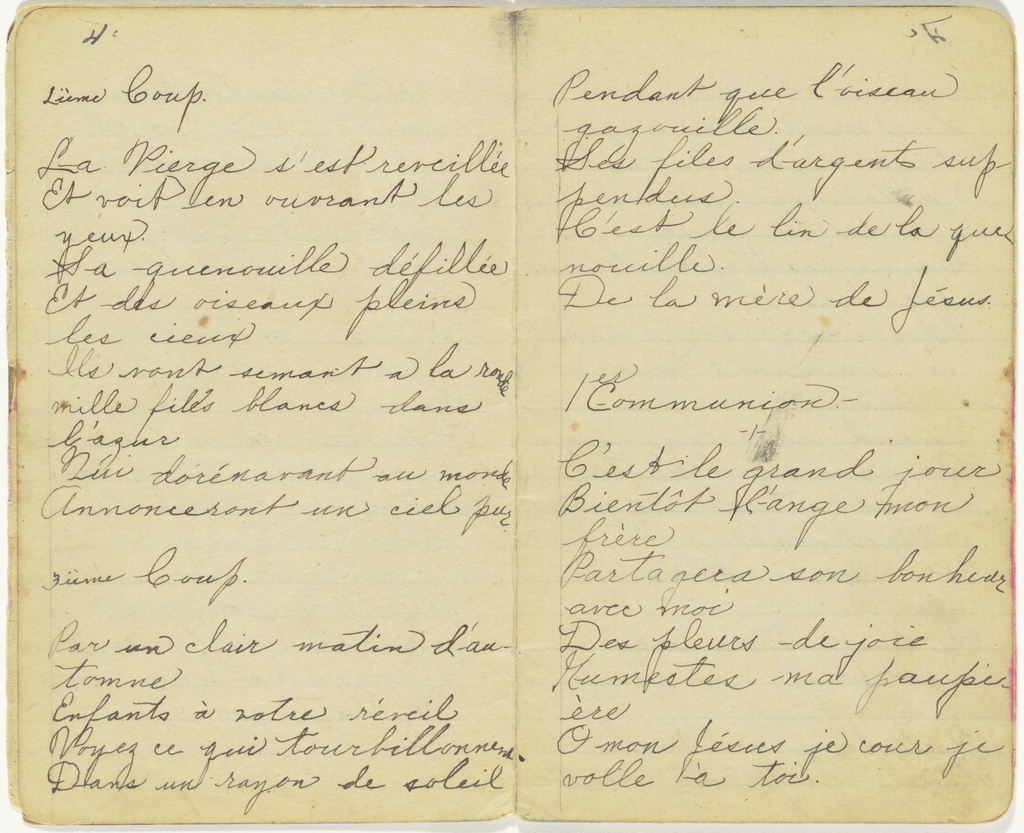 4
2ième Coup.
La Vierge s'est reveillée
Et voit en ouvrant les
yeux.
Sa quenouille défillée
Et des oiseaux pleins
les cieux
Ils vont semant a la ronde
mille filés blancs dans
l'azur
Qui dorénavant au monde
Annonceront un ciel pur
3ième Coup.
Par un clair matin d'au-
tomne
Enfants à votre réveil
Voyez ce qui tourbillonnent.
Dans un rayon de soleil
Pendant que l'oiseau
gazouille.
Ses files d'argents sup
pendus.
C'est le lin de la que
nouille.
De la mère de Jésus.
1er Communion.-
-1-
C'est le grand jour
Bientôt l'ange mon
frère
Partagera son bonheur
avec moi
Des pleurs de joie
Humectes ma paupi-
ère
O mon Jésus je cour je
volle à toi.